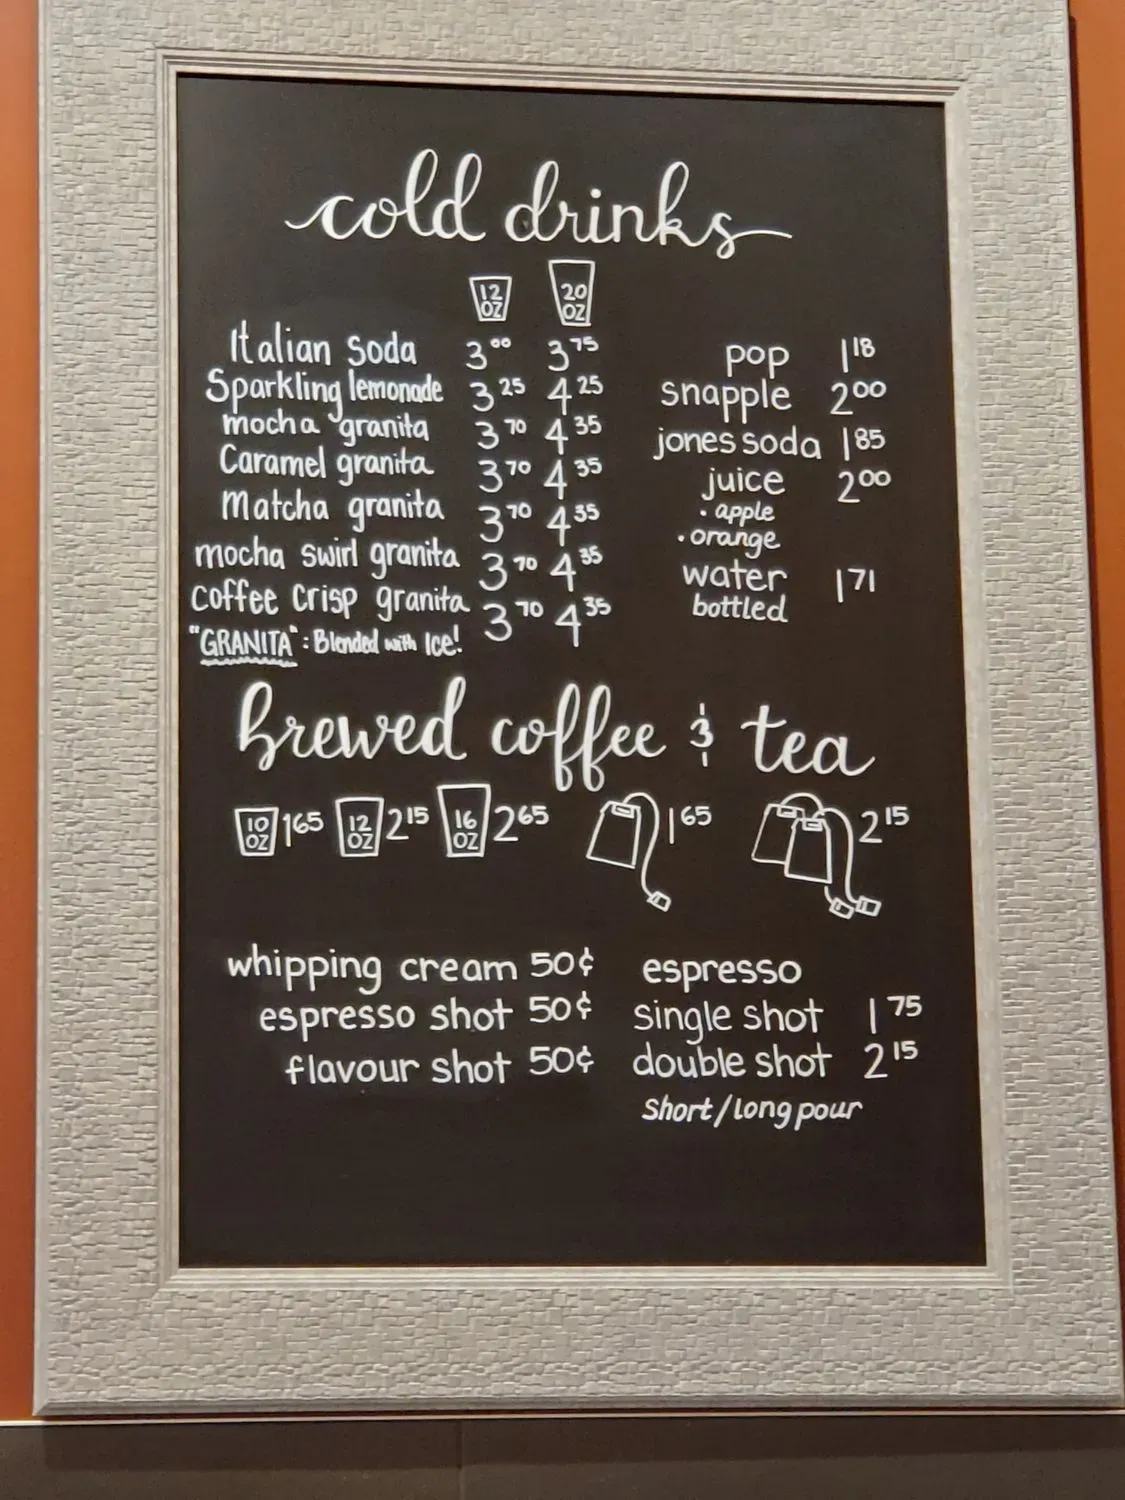 cold drinks
12 OZ 20 OZ
Italian Soda 3⁰⁰ 3⁷⁵
Sparkling lemonade 3²⁵ 4²⁵
mocha granita 3⁷⁰ 4³⁵
Caramel granita 3⁷⁰ 4³⁵
Matcha granita 3⁷⁰ 4³⁵
mocha swirl granita 3⁷⁰ 4³⁵
coffee crisp granita 3⁷⁰ 4³⁵
"GRANITA": Blended with Ice!
pop 1¹⁸
snapple 2⁰⁰
jones soda 1⁸⁵
juice 2⁰⁰
• apple
• orange
water 1⁷¹
bottled
brewed coffee & tea
10 OZ 1⁶⁵ 12 OZ 2¹⁵ 16 OZ 2⁶⁵ 1⁶⁵ 2¹⁵
whipping cream 50¢
espresso shot 50¢
flavour shot 50¢
espresso
single shot 1⁷⁵
double shot 2¹⁵
short/long pour